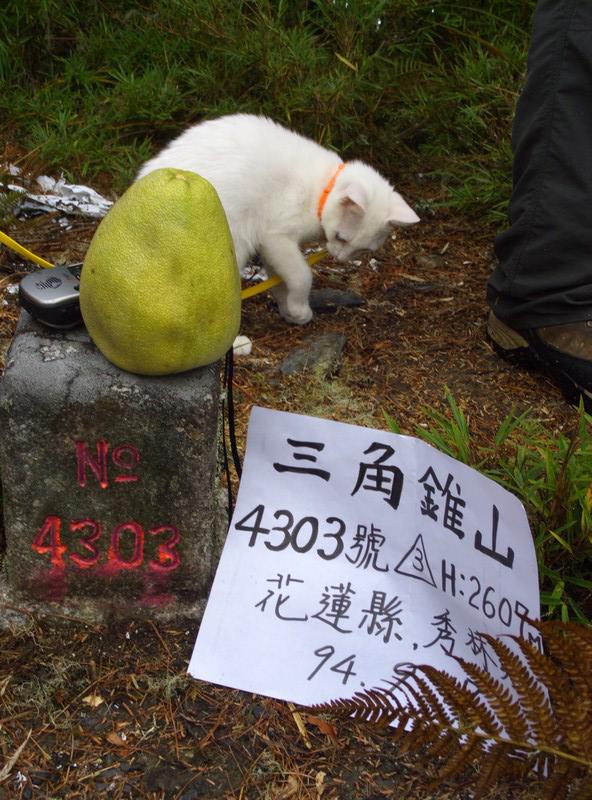 Nº
4303
三角錐山
4303號 3 H:2607M
花蓮縣,秀林
94.